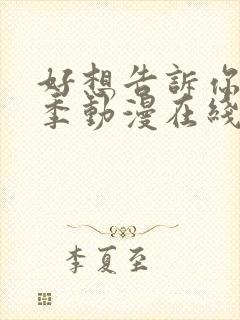 好想告訴你
季動漫在綫
李夏至